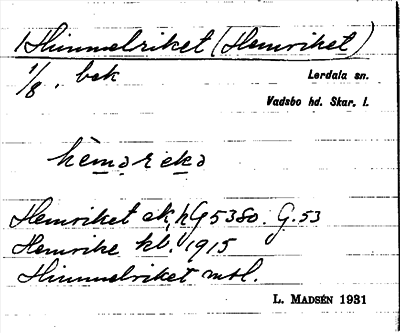 Himmelriket (Hemriket)
1/8. bek
Lerdala sn.
Vadsbo hd. Skar. l.
hèmərekə
Hemriket ek, hG 5380. G. 53
Hemrike kl. 1915
Himmelriket mtl.
L. MADSÉN 1931